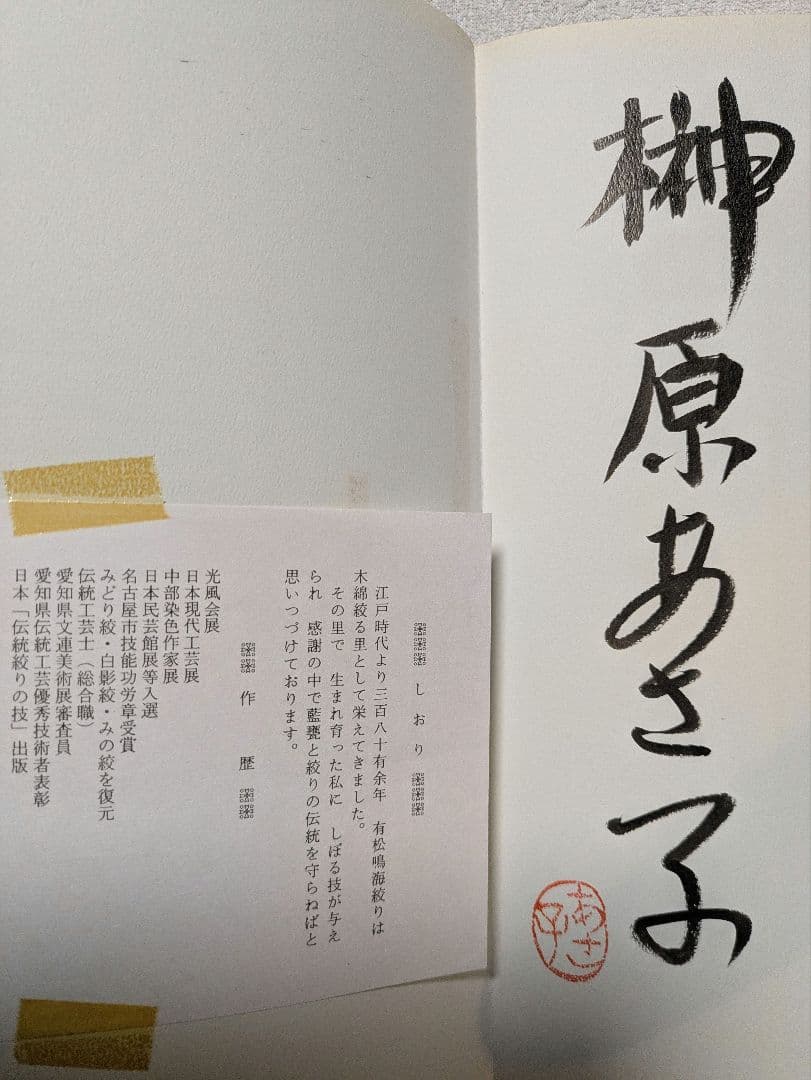 榊原あさ子
あさ子
しおり
江戸時代より三百八十有余年　有松鳴海絞りは
木綿絞る里として栄えてきました。
その里で　生まれ育った私に　しぼる技が与え
られ　感謝の中で藍甕と絞りの伝統を守らねばと
思いつづけております。
作歴
光風会展
日本現代工芸展
中部染色作家展
日本民芸館展等入選
名古屋市技能功労章受賞
みどり絞・白影絞・みの絞を復元
伝統工芸士（総合職）
愛知県文連美術展審査員
愛知県伝統工芸優秀技術者表彰
日本「伝統絞りの技」出版